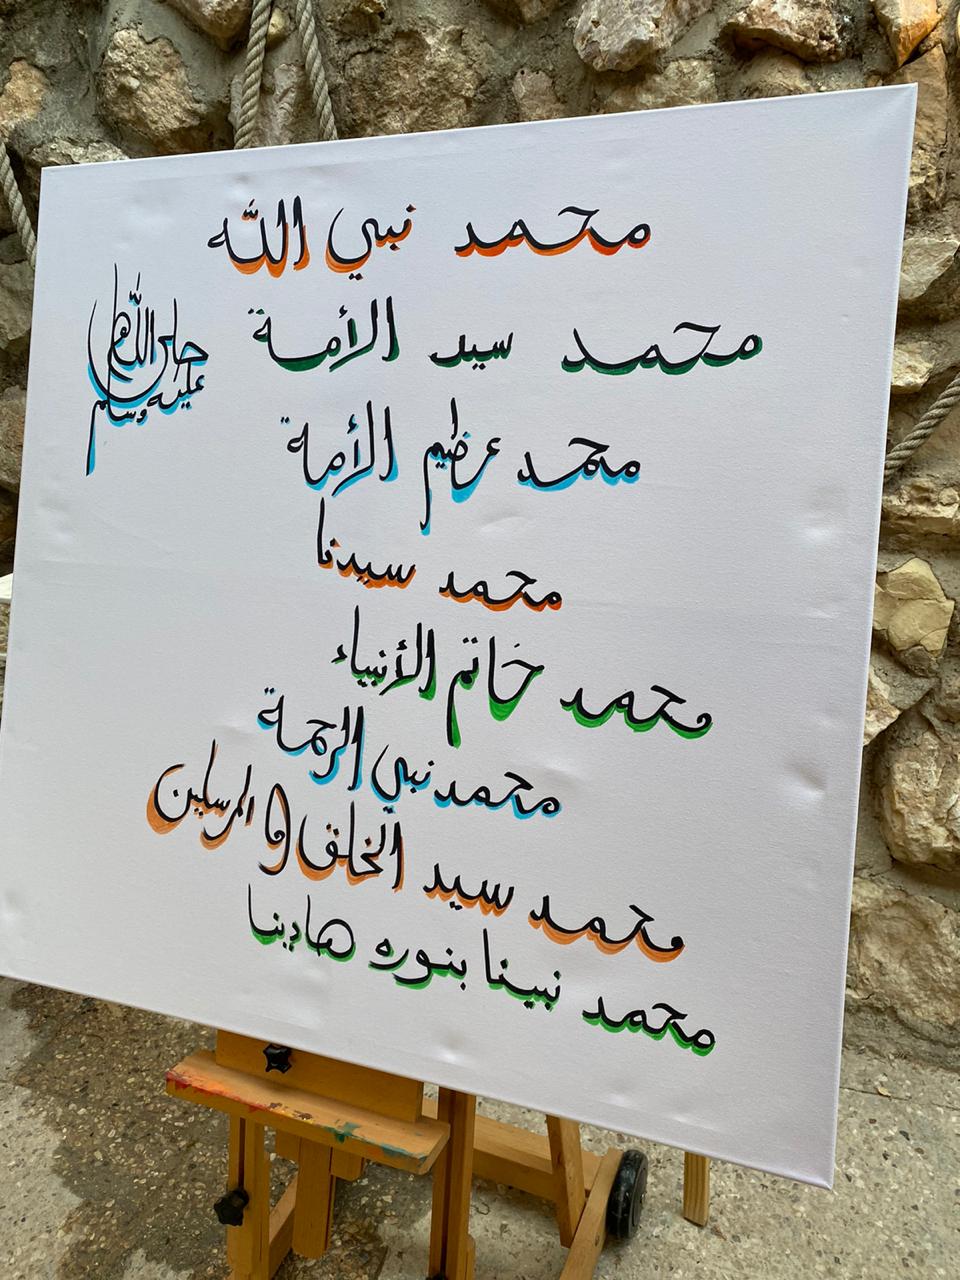 محمد نبي الله
محمد سيد الأمة
صلى الله عليه وسلم
محمد عظيم الأمة
محمد سيدنا
محمد خاتم الأنبياء
محمد نبي الرحمة
محمد سيد الخلق والمرسلين
محمد نبينا بنوره هادينا